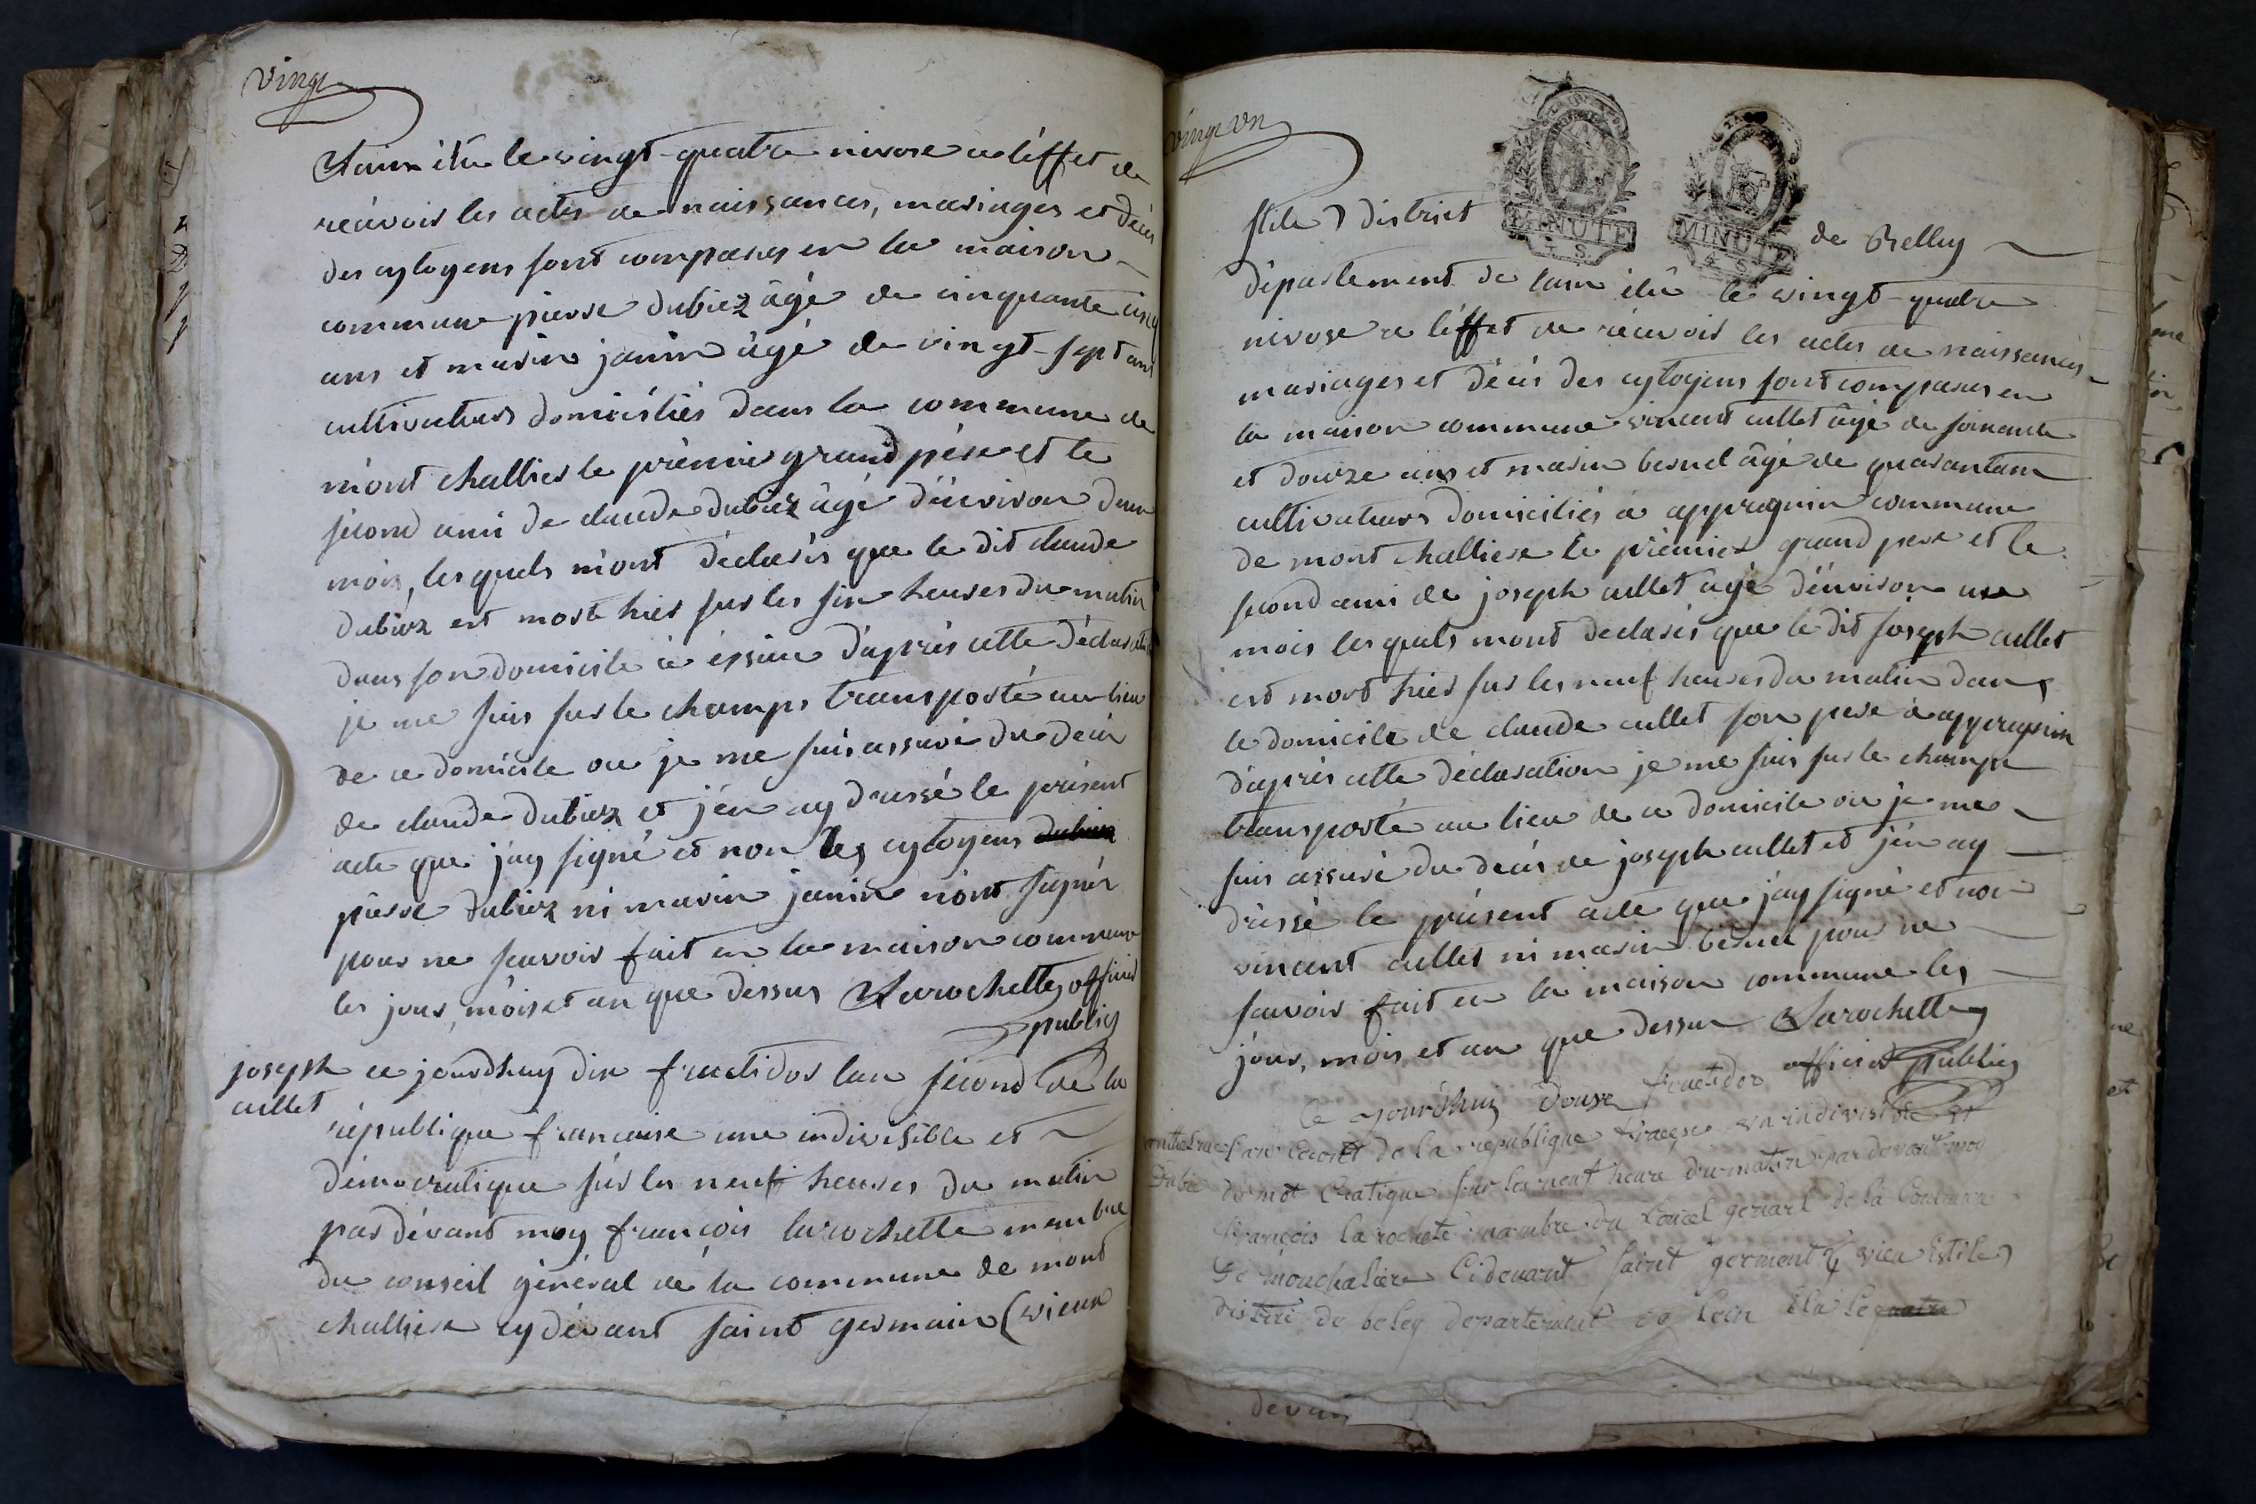 vingt
l'ain élu le vingt-quatre nivose a léffet de
récévoir les actes de naissances, mariages et décés
des cytoyens sont comparus en la maison
commune pierre dubiez âgé de cinquante cinq
ans et marin janin âgé de vingt-sept ans
cultivateurs domiciliés dans la commune de
mont challier le prémier grand pére et le
sécond ami de claude dubiez âgé d'énviron d'un
mois, les quels m'ont déclarés que le dit claude
dubiez est mort hier sur les six heures du matin
dans son domicile à éssieu d'aprés cette déclaration
je me suis sur le champs transporté au lieu
de ce domicile ou je me suis assuré du décés
de claude dubiez et j'én ay dressé le présent
acte que j'ay signé et non les cytoyens dubiez
pierre dubiez ni marin janin n'ont signés
pour ne scavoir fait en la maison commune
les jour, mois et an que dessus Larochette officier
public
joseph
cullet
ce jourdhuy dix fructidor lan sécond de la
république francaise une indivisible et
démocratique sur les neuf heures du matin
par dévant moy françois larochette membre
du conseil général de la commune de mont
challier cy dévant saint germain (vieux
vingt un
stile) district de Belley
département de lain élû le vingt-quatre
nivose a léffet de récevoir les actes de naissances
mariages et décés des cytoyens sont comparus en
la maison commune vincent cullet âgé de soixante
et douze ans et marin besnel âgé de quarante ans
cultivateurs domiciliés à appregnin commune
de mont challiere le prémier grand pere et le
second ami de joseph cullet âgé d'énviron un
mois les quels mont declarés que le dit joseph cullet
est mort hier sur les neuf heures du matin dans
le domicile de claude cullet son pere à appregnin
d'aprés cette déclaration je me suis sur le champs
transporté au lieu de ce domicile ou je me
suis assuré du décés de joseph cullet et j'én ay
dréssé le présent acte que jay signé et non
vincent cullet ni marin besnel pour ne
scavoir fait en la maison commune les
jour, mois et an que dessus Larochette
officier public
Ce jourdhuy douse fructidor
Dubie
lan second de la republique francse un indivisible et
du mot Cratique sur les neuf heure du matin par devant moy
françois la rochete manbre du Concel genaral de la Commune
de mouchaliere Cidevant saint germent (vieu Estile)
distrie de beley departement de Lein Elu le quatre
devan